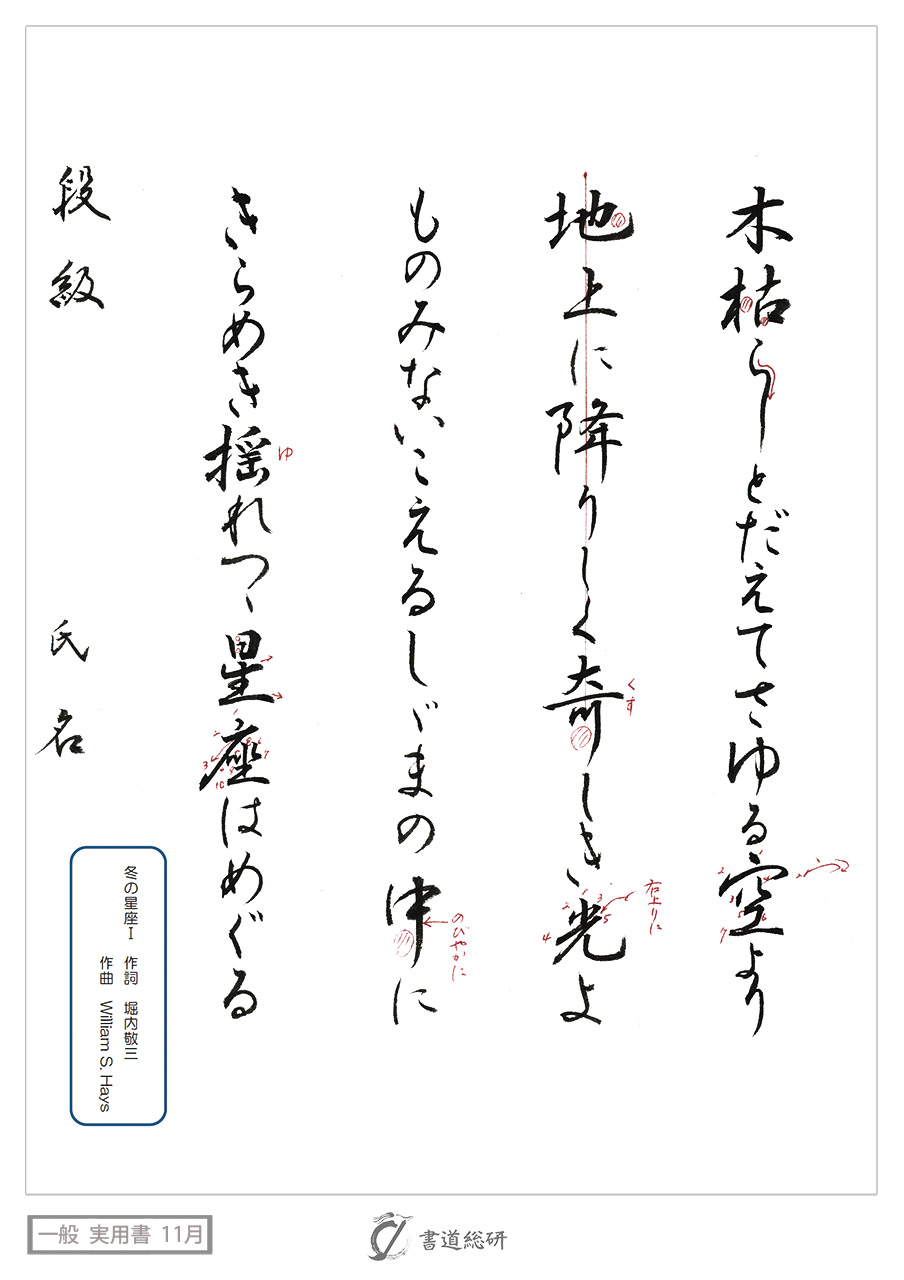 木枯らしとだえてさゆる空より
地上に降りしく奇しき光よ
くす
右上りに
ものみないこえるしゞまの中に
のびやかに
きらめき揺れつゝ星座はめぐる
ゆ
段級 氏名
冬の星座Ⅰ 作詞 堀内敬三
作曲 William S. Hays
一般 実用書 11月
書道総研